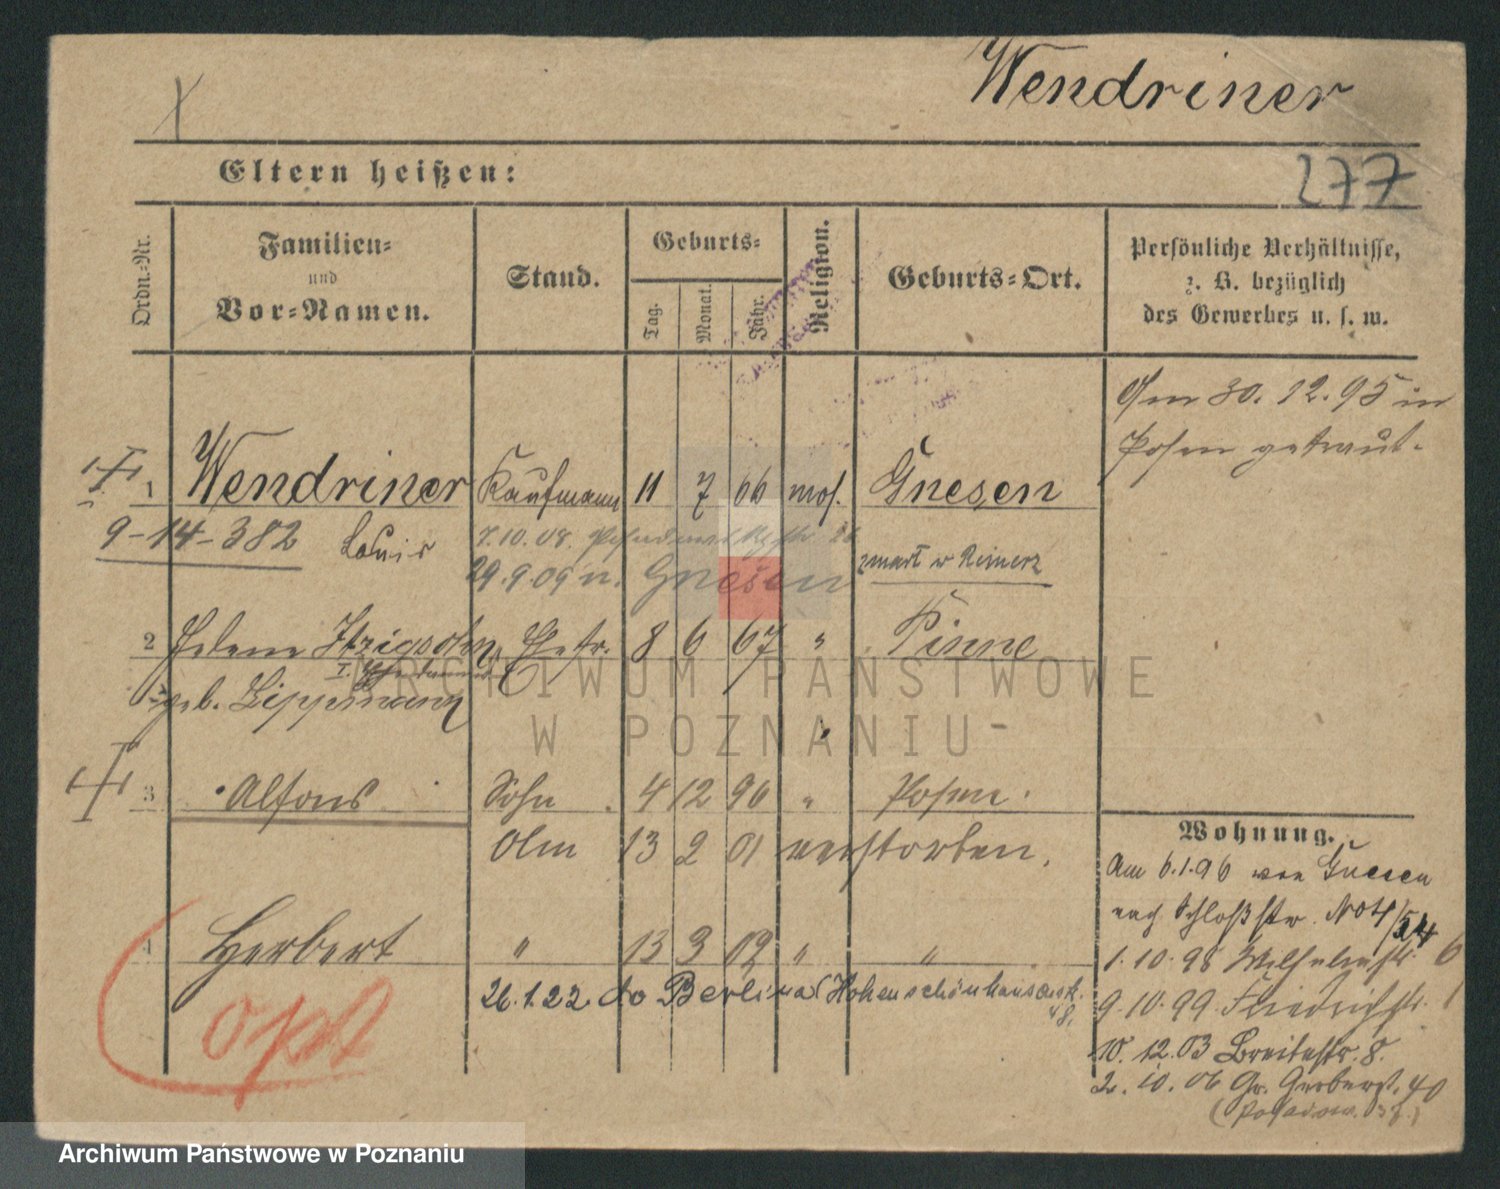 Wendriner
Eltern heißen:
277
Ordn.-Nr.
Familien-
und
Vor-Namen.
Stand.
Geburts-
Tag.
Monat.
Jahr.
Religion.
Geburts-Ort.
Persönliche Verhältnisse,
z. B. bezüglich
des Gewerbes u. s. w.
Am 30.12.95 in
Posen getraut.
1 Wendriner Kaufmann 11 7 66 mos. Gnesen
9-14-382 Louis 7.10.08.
29.9.09 n. Gnesen
zmarł w Reinerz
2 Helene Itzigsohn, Ehefr. 8 6 67 " Pinne
geb. Lippmann
3 Alfons Sohn 4 12 96 " Posen
Am 13 2 01 verstorben.
4 Herbert " 13 3 02 " "
26.1.22 do Berlina (Hohenschönhauserstr.
48.
opt
Wohnung.
Am 6.1.96 von Gnesen
nach Schloßstr. No 4/54
1.10.98 Wilhelmstr. 6
9.10.99 Friedrichstr. 1
10.12.03 Breitestr. 8.
2.10.06 Gr. Gerberst. 40
ARCHIWUM PAŃSTWOWE
W POZNANIU
Archiwum Państwowe w Poznaniu